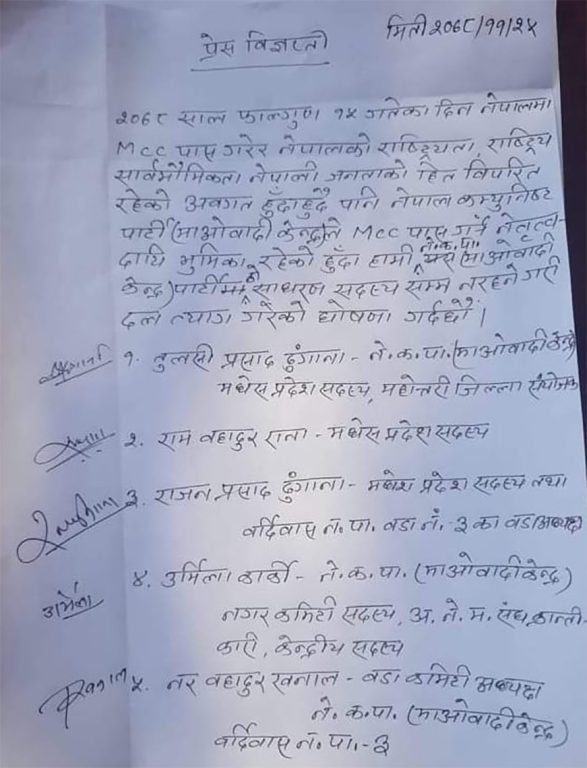 मिती २०७८/११/२५
प्रेस विज्ञप्ती
२०७८ साल फाल्गुण १५ गतेका दिन नेपालमा
Mcc पास गरेर नेपालको राष्ट्रियता, राष्ट्रिय
सार्वभौमिकता नेपाली जनताको हित विपरित
रहेको अवगत हुँदाहुँदै पनि नेपाल कम्युनिष्ट
पार्टी (माओवादी केन्द्र) ले Mcc पास गर्न नेतृत्व-
दायि भुमिका रहेको हुँदा हामी ने.क.पा. (माओवादी
केन्द्र) पार्टीमा को साधरण सदस्य सम्म नरहने गरी
दल त्याग गरेको घोषणा गर्दछौं।
१. तुलसी प्रसाद ढुंगाना - ने.क.पा. (माओवादी केन्द्र)
मधेस प्रदेश सदस्य, महोत्तरी जिल्ला संयोजक
२. राम वहादुर राना - मधेस प्रदेश सदस्य
३. राजन प्रसाद ढुंगाना - मधेश प्रदेश सदस्य तथा
वर्दिवास न.पा. वडा नं. -३ का वडा अध्यक्ष
उर्मिला
४. उर्मिला कार्की - ने.क.पा. (माओवादी केन्द्र)
नगर कमिटी सदस्य, अ.ने.म. संघ, क्रान्ती-
कारी, केन्द्रीय सदस्य
५. नर वहादुर खनाल - वडा कमिटी अध्यक्ष
ने.क.पा. (माओवादी केन्द्र)
वर्दिवास न.पा. -३